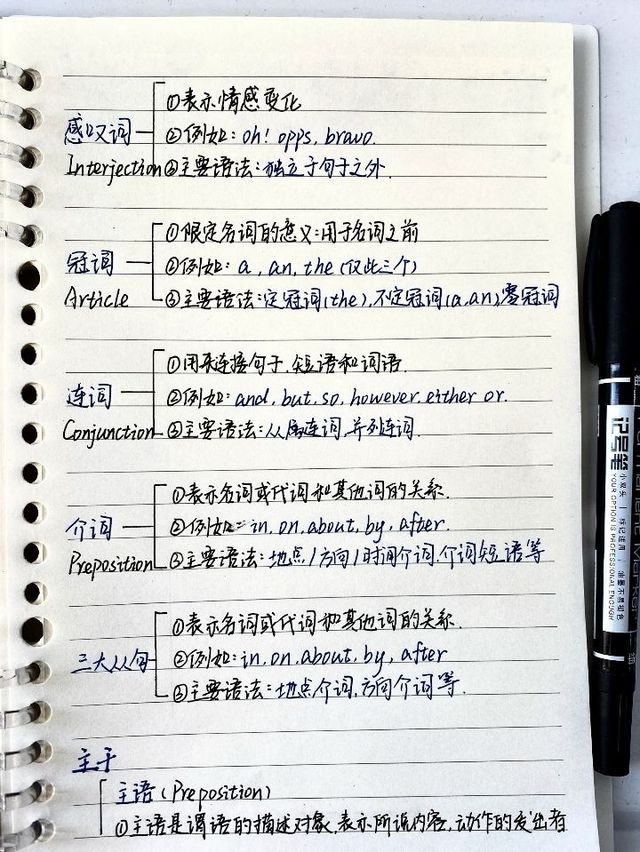 ①表示情感变化
感叹词 ②例如：oh! opps, bravo.
Interjection ③主要语法：独立于句子之外.
①限定名词的意义：用于名词之前
冠词 ②例如：a, an, the (仅此三个)
Article ③主要语法：定冠词(the), 不定冠词(a, an), 零冠词
①用来连接句子、短语和词语.
连词 ②例如：and, but, so, however, either or.
Conjunction ③主要语法：从属连词, 并列连词.
①表示名词或代词和其他词的关系.
介词 ②例如：in, on, about, by, after.
Preposition ③主要语法：地点/方向/时间介词, 介词短语等
①表示名词或代词和其他词的关系.
三大从句 ②例如：in, on, about, by, after
③主要语法：地点介词, 方向介词等.
主干
主语 (Preposition)
①主语是谓语的描述对象, 表示所说内容, 动作的发出者
记号笔
小双头 | 标记适用 | 油墨不易褪色
YOUR OPTION IS PROFESSIONAL ENOUGH